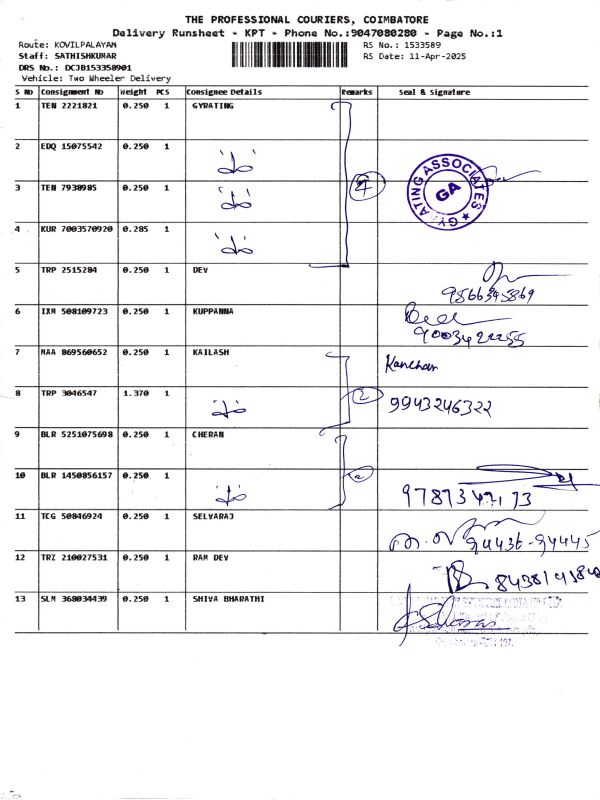 THE PROFESSIONAL COURIERS, COIMBATORE
Delivery Runsheet - KPT - Phone No.:9047080280 - Page No.:1
Route: KOVILPALAYAM RS No.: 1533589
Staff: SATHISHKUMAR RS Date: 11-Apr-2025
DRS No.: DCJB153358901
Vehicle: Two Wheeler Delivery
S No Consignment No Weight PCS Consignee Details Remarks Seal & Signature
1 TEN 2221821 0.250 1 GYRATING
2 EDQ 15075542 0.250 1
3 TEN 7938985 0.250 1 4 GYRATING ASSOCIATES GA
4 KUR 7003570920 0.285 1
5 TRP 2515284 0.250 1 DEV
9566395869
6 IXM 508109723 0.250 1 KUPPANNA
9003422255
7 MAA 869560652 0.250 1 KAILASH Kanchan
8 TRP 3046547 1.370 1 2 9943246322
9 BLR 5251075698 0.250 1 CHERAN
10 BLR 1450856157 0.250 1 2
11 TCG 50846924 0.250 1 SELVARAJ
94436-94445
12 TRZ 210027531 0.250 1 RAM DEV
13 SLM 368034439 0.250 1 SHIVA BHARATHI